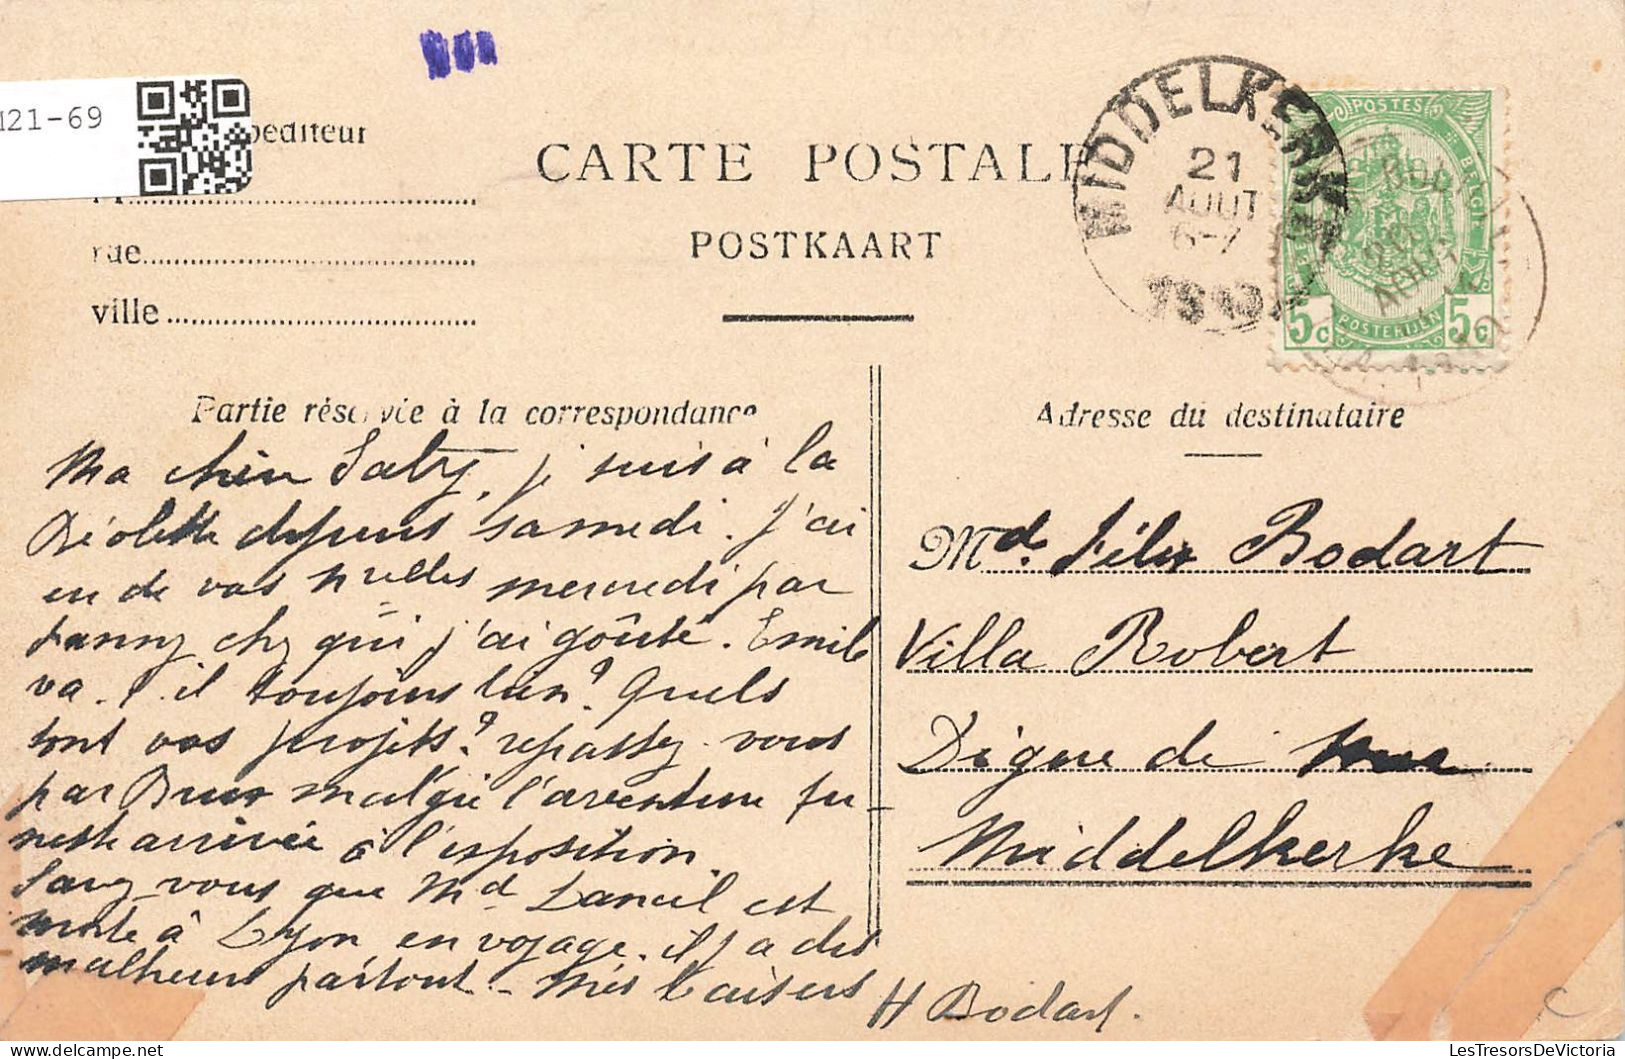 121-69
péditeur
CARTE POSTALE
POSTKAART
rue
ville
MIDDELKERKE
21
AOUT
6-7
POSTES
BELGIE
5c POSTERIJEN 5c
AOUT
Partie réservée à la correspondance
Adresse du destinataire
Ma chère Gaby, j suis à la
depuis samedi. J'ai
eu de vos nelles mercredi par
Fanny chez qui j'ai goûté. Emile
va-t-il toujours bien? Quels
sont vos projets? repassez-vous
par Brux malgré l'aventure fu-
neste arrivée à l'exposition
Savez-vous que Md Lancil est
morte à Lyon en voyage. il y a des
malheurs partout - Mes baisers
H Bodart.
Md. Félix Bodart
Villa Robert
Digue de mer
Middelkerke
C
LesTresorsDeVictoria